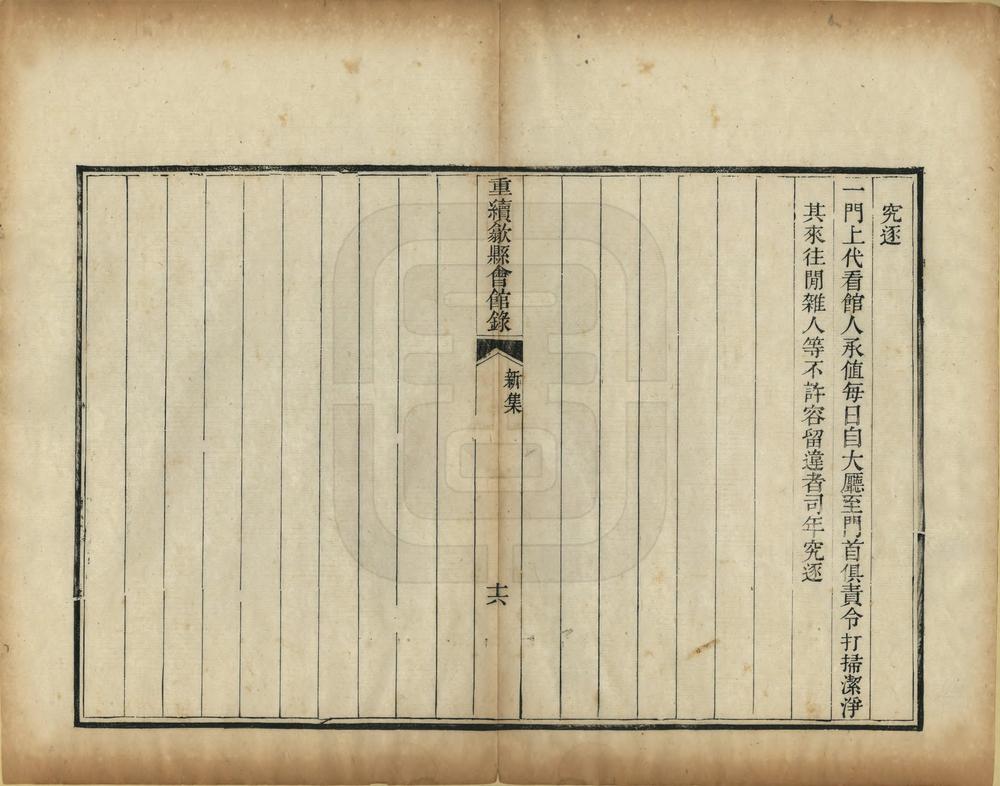 究逐
一門上代看館人承值每日自大廳至門首俱責令打掃潔淨
其來往閒雜人等不許容留違者司年究逐
重續歙縣會館錄
新集
十六